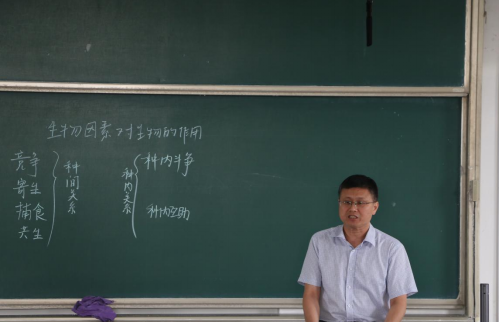 生物因素对生物的作用
竞争
寄生
捕食
共生
种间关系
种内关系
种内斗争
种内互助